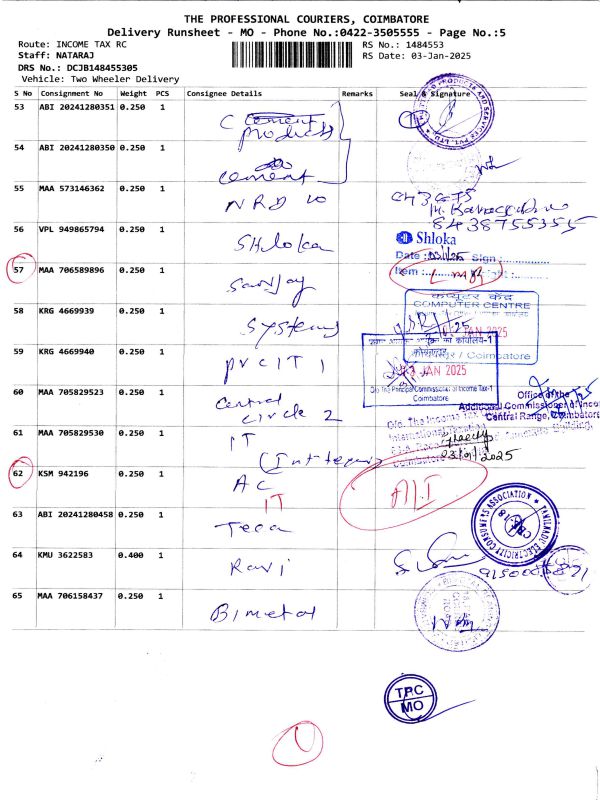 THE PROFESSIONAL COURIERS, COIMBATORE
Delivery Runsheet - MO - Phone No.:0422-3505555 - Page No.:5
Route: INCOME TAX RC
RS No.: 1484553
Staff: NATARAJ
RS Date: 03-Jan-2025
DRS No.: DCJB148455305
Vehicle: Two Wheeler Delivery
S No Consignment No Weight PCS Consignee Details Remarks Seal & Signature
53 ABI 20241280351 0.250 1
Cement
products
54 ABI 20241280350 0.250 1
cement
55 MAA 573146362 0.250 1 NRD
8438755355
56 VPL 949865794 0.250 1 Shloka
Shloka
Date : 03/1/25 Sign :
Item :
57 MAA 706589896 0.250 1 Sanjay
58 KRG 4669939 0.250 1 Systems
कम्प्यूटर केंद्र
COMPUTER CENTRE
JAN 2025
Coimbatore
59 KRG 4669940 0.250 1 PrCIT 1
का कार्यालय-1
JAN 2025
O/o The Principal Commissioner of Income Tax-1
Coimbatore
60 MAA 705829523 0.250 1 Central
Circle 2
Office of the
Additional Commissioner of Income
Central Range, Coimbatore
61 MAA 705829530 0.250 1 IT
O/o. The Income Tax
International Taxation
03/01/2025
62 KSM 942196 0.250 1 AC
IT
63 ABI 20241280458 0.250 1 Teca
TAMILNADU ELECTRICITY CONSUMERS ASSOCIATION
CBE-18
64 KMU 3622583 0.400 1 Ravi
65 MAA 706158437 0.250 1 Bimetal
TPC
MO